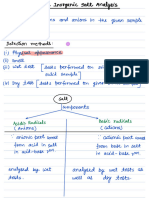 Inorganic Salt Analysis
cations and anions in the given sample
Detection methods
(i) Physical appearance
(ii) Smell
(iii) Wet test { tests performed on
salt sample }
(iv) Dry test { tests performed on given
Salt
components
Acidic Radicals
(anions)
Basic Radicals
(cations)
anionic part comes
from acid in salt
in acid-base
cationic part comes
from base in salt
in acid-base
analysed by wet
tests.
analysed by wet tests
as well as dry tests.